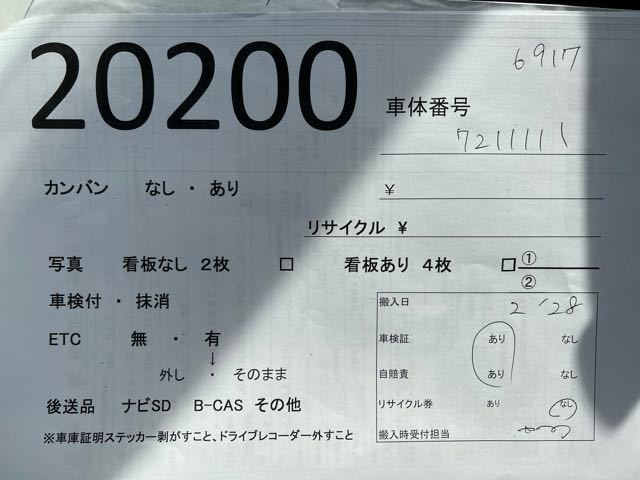 20200
6917
車体番号
7211111
カンバン なし ・ あり
￥
リサイクル ￥
写真 看板なし 2枚 □ 看板あり 4枚 □ ①
②
車検付 ・ 抹消
ETC 無 ・ 有
↓
外し ・ そのまま
後送品 ナビSD B-CAS その他
※車庫証明ステッカー剥がすこと、ドライブレコーダー外すこと
搬入日 2 '28
車検証 あり なし
自賠責 あり なし
リサイクル券 あり なし
搬入時受付担当